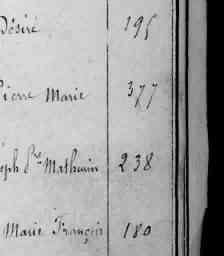 Désiré 195
Pierre Marie 377
oseph Pre Mathurin 238
Marie François 180